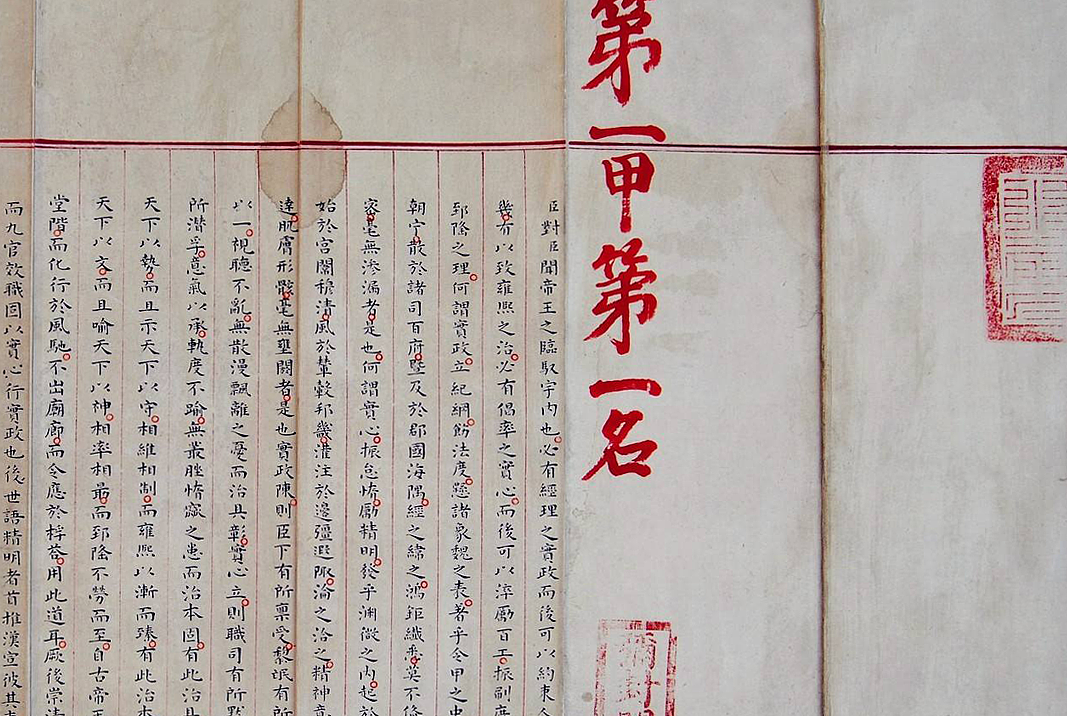 第一甲第一名
彌封
臣對臣聞帝王之臨馭宇內也必有經理之實政而後可以約束
幾有以致雍熙之治必有倡率之實心而後可以淬勵百工振刷庶
郅隆之理何謂實政立紀綱飭法度懸諸象魏之表著乎令甲之中
朝宁散於諸司百府暨及於郡國海隅經之緯之鴻鉅纖悉莫不備
密毫無滲漏者是也何謂實心振怠惰勵精明發乎淵微之內起於
始於宮闈穆清風於輦轂邦畿灌注於邊疆遐陬淪之洽之精神意
達肌膚形骸毫無壅閼者是也實政陳則臣下有所稟受黎氓有所
以一視聽不亂無散漫飄離之憂而治具彰實心立則職司有所默
所潛孚意氣以承軌度不踰無叢脞惰窳之患而治本固有此治具
天下以勢而且示天下以守相維相制而雍熙以漸而臻有此治本
天下以文而且喻天下以神相率相勖而郅隆不勞而至自古帝王
堂階而化行於風馳不出廟廊而令應於桴荅用此道耳厥後崇清
而九官效職固以實心行實政也後世語精明者首推漢宣彼其